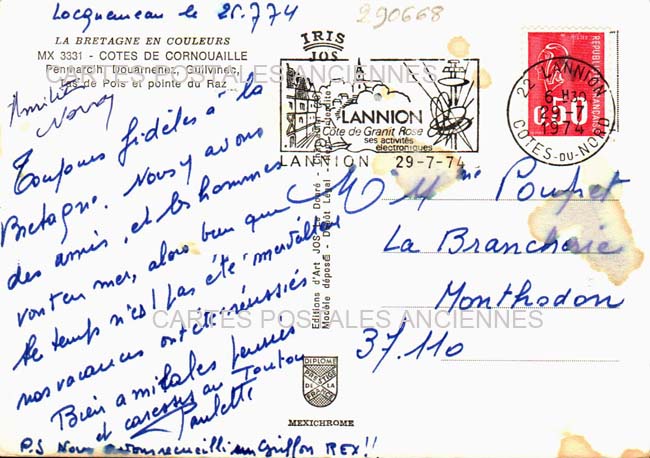 Locquemeau le 25.7.74
290668
LA BRETAGNE EN COULEURS
MX 3331 - COTES DE CORNOUAILLE
Penmarc'h, Douarnenez, Guilvinec,
Tas de Pois et pointe du Raz
CARTES POSTALES ANCIENNES
Amitiés
Toujours fidèles à la
Bretagne. Nous y avons
des amis, et les hommes
vont en mer, alors bien que
le temps n'est pas été merveilleux
nos vacances ont été réussies
Bien amicales pensées
et caresses au Toutou
Paulette
P.S Nous avons recueilli un Griffon REX!!
IRIS
JOS
LANNION
Côte de Granit Rose
ses activités
électroniques
LANNION 29-7-74
22 LANNION
6 H30
29-7
1974
COTES-DU-NORD
REPUBLIQUE FRANÇAISE
0.50
M. Mme Poupet
La Brancherie
Monthodon
37.110
Editions d'Art JOS Le Doaré
Modèle déposé - Dépôt Légal
CARTES POSTALES ANCIENNES
DIPLOME
PRESTIGE
DE LA
FRANCE
MEXICHROME